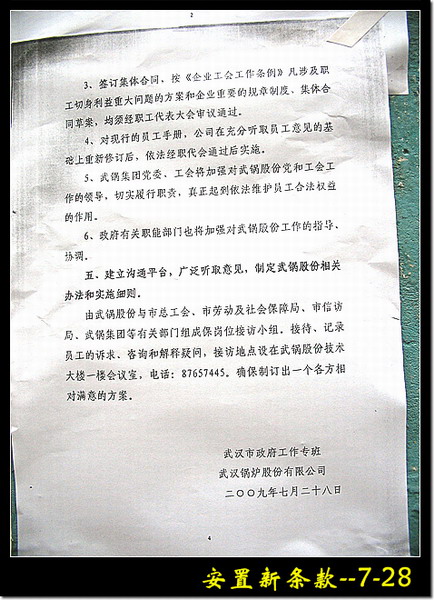 2
3、签订集体合同、按《企业工会工作条例》凡涉及职
工切身利益重大问题的方案和企业重要的规章制度、集体合
同草案，均须经职工代表大会审议通过。
4、对现行的员工手册，公司在充分听取员工意见的基
础上重新修订后，依法经职代会通过后实施。
5、武锅集团党委、工会将加强对武锅股份党和工会工
作的领导，切实履行职责，真正起到依法维护员工合法权益
的作用。
6、政府有关职能部门也将加强对武锅股份工作的指导、
协调。
五、建立沟通平台，广泛听取意见，制定武锅股份相关
办法和实施细则。
由武锅股份与市总工会、市劳动及社会保障局、市信访
局、武锅集团等有关部门组成保岗位接访小组。接待、记录
员工的诉求、咨询和解释疑问，接访地点设在武锅股份技术
大楼一楼会议室，电话：87657445。确保制订出一个各方相
对满意的方案。
武汉市政府工作专班
武汉锅炉股份有限公司
二〇〇九年七月二十八日
4
安置新条款--7-28